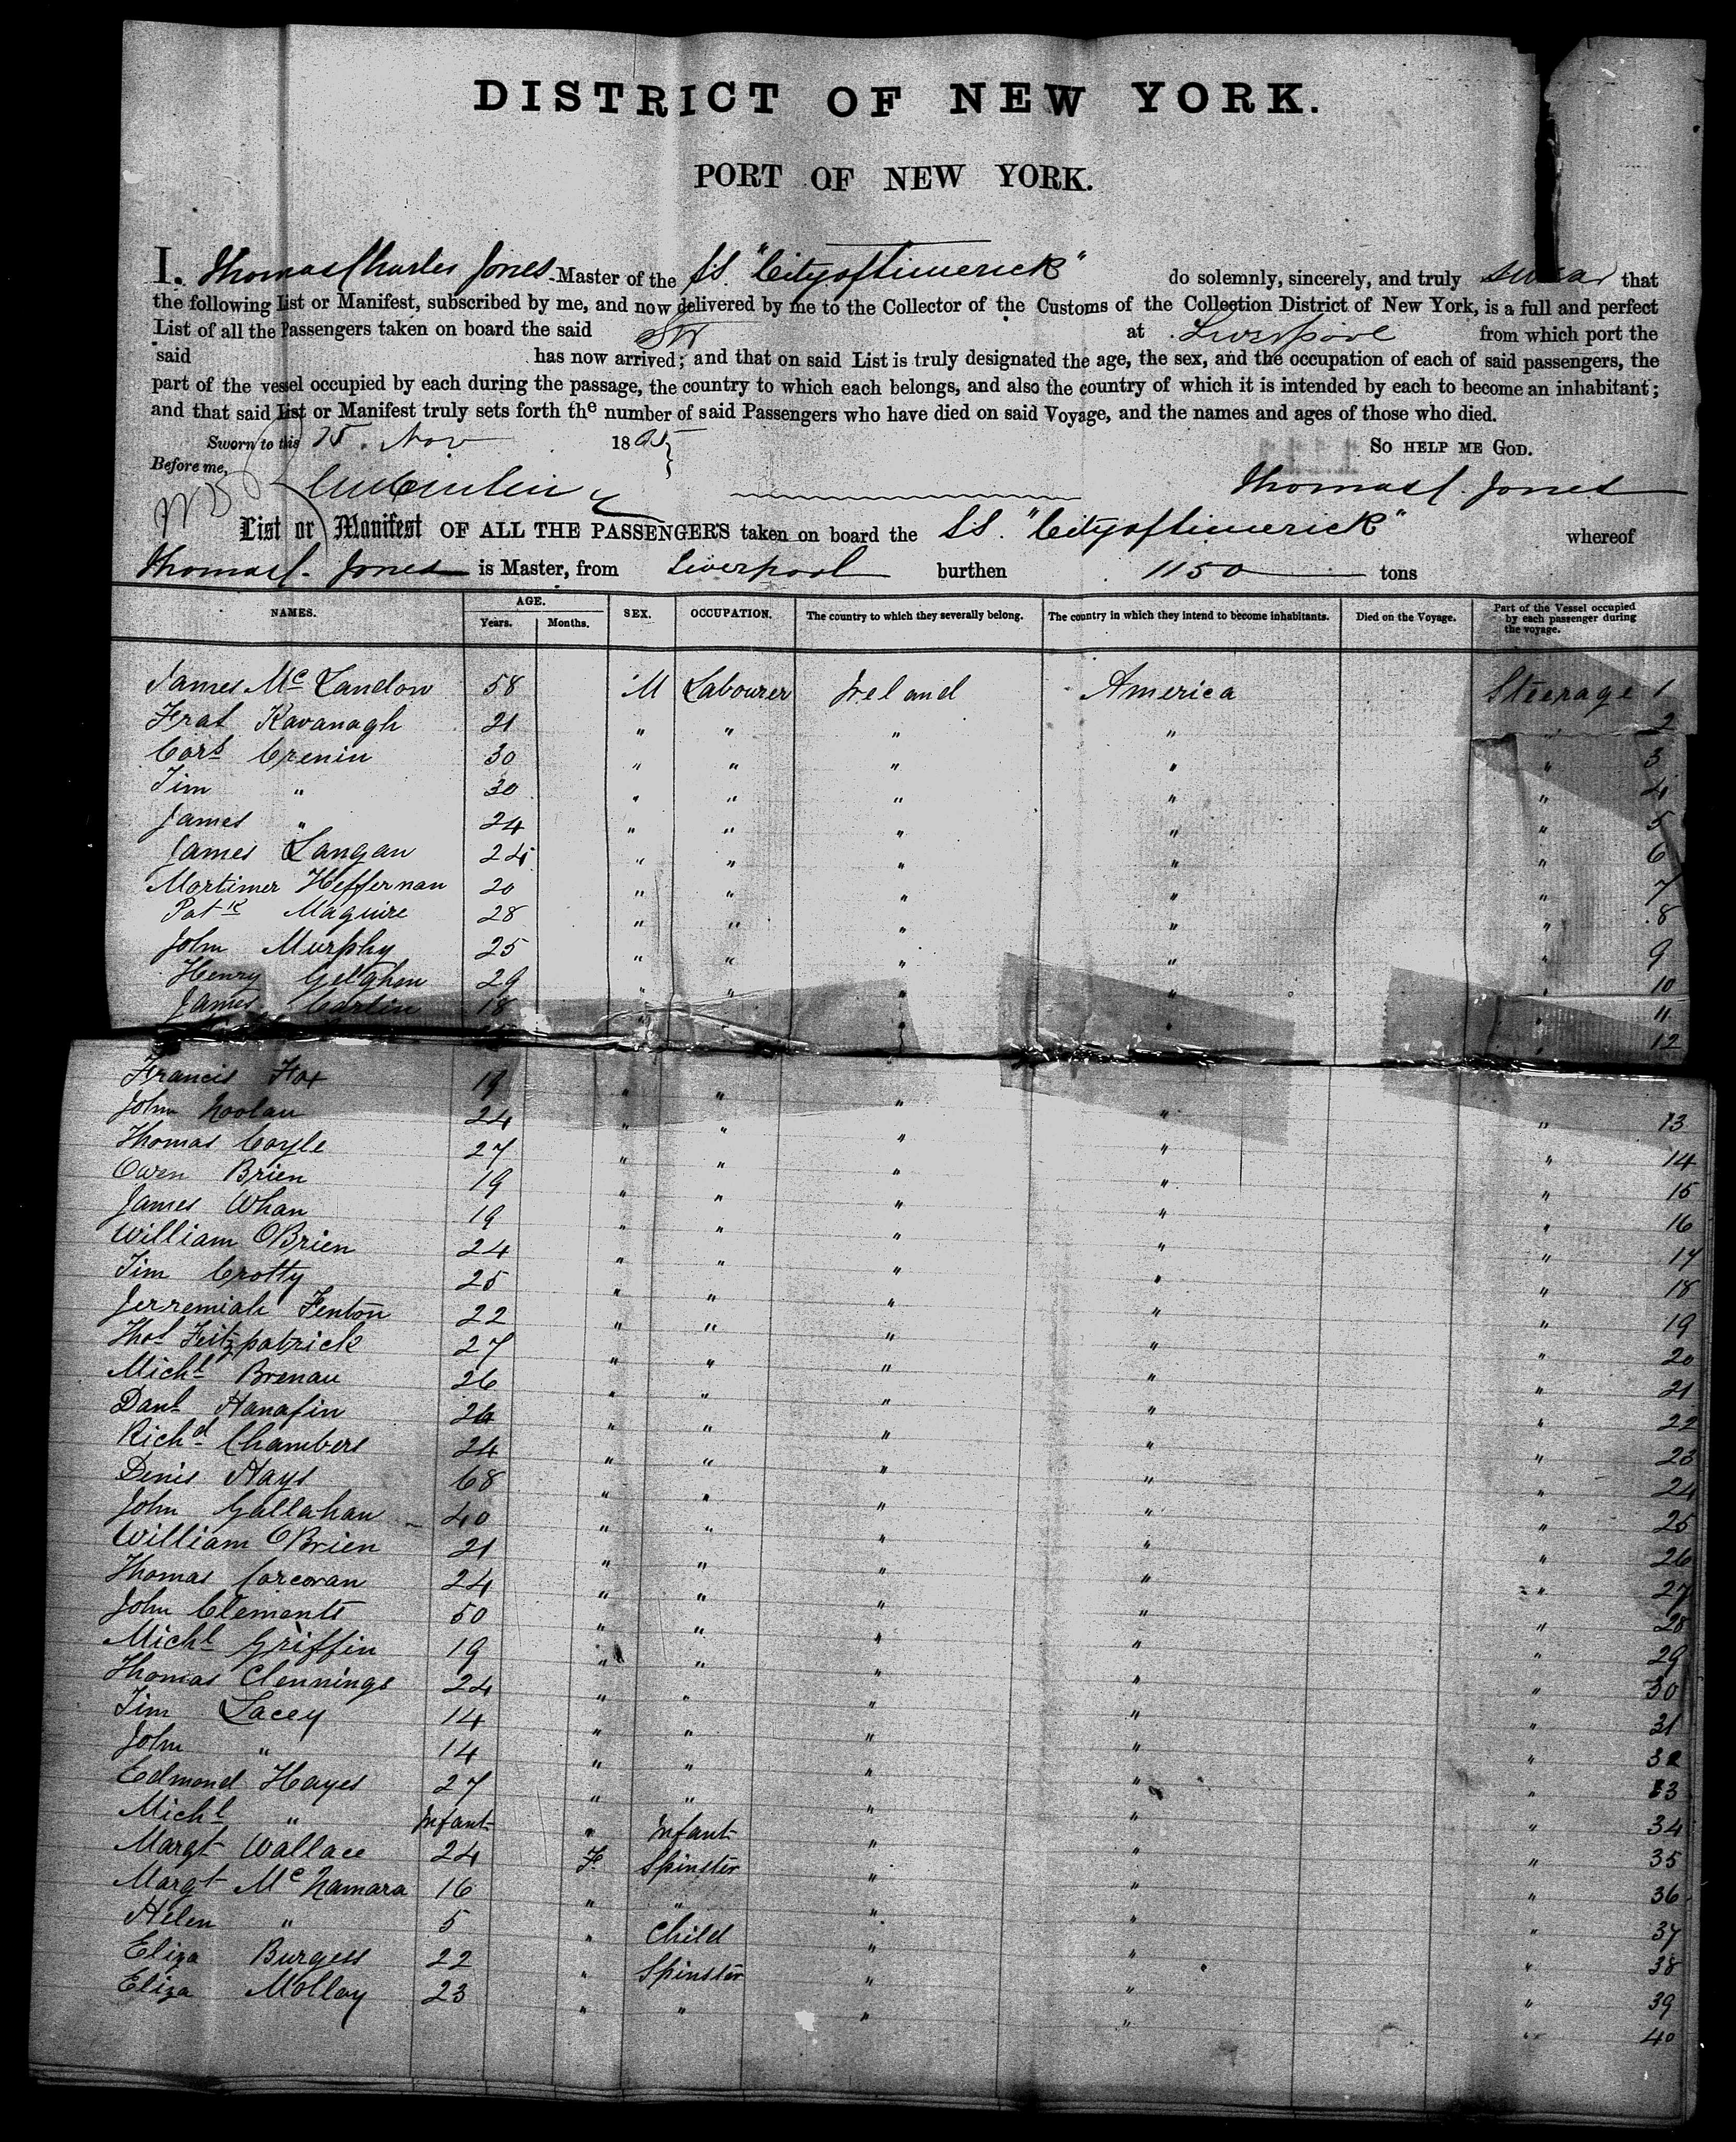 DISTRICT OF NEW YORK.
PORT OF NEW YORK.
I, Thomas Charles Jones Master of the S.S. "City of Limerick" do solemnly, sincerely, and truly swear that
the following List or Manifest, subscribed by me, and now delivered by me to the Collector of the Customs of the Collection District of New York, is a full and perfect
List of all the Passengers taken on board the said Str at Liverpool from which port the
said has now arrived; and that on said List is truly designated the age, the sex, and the occupation of each of said passengers, the
part of the vessel occupied by each during the passage, the country to which each belongs, and also the country of which it is intended by each to become an inhabitant;
and that said List or Manifest truly sets forth the number of said Passengers who have died on said Voyage, and the names and ages of those who died.
Sworn to this Nov 1865 SO HELP ME GOD.
Before me,
Thomas C. Jones
List or Manifest OF ALL THE PASSENGERS taken on board the S.S. "City of Limerick" whereof
Thomas C. Jones is Master, from Liverpool burthen 1150 tons
NAMES. AGE. Years. Months. SEX. OCCUPATION. The country to which they severally belong. The country in which they intend to become inhabitants. Died on the Voyage. Part of the Vessel occupied by each passenger during the voyage.
James Mc Landow 58 M Labourer Ireland America Steerage 1
Frat Kavanagh 21 " " " " " 2
Cors Crenin 30 " " " " " 3
Tim " 30 " " " " " 4
James " 24 " " " " " 5
James Langan 24 " " " " " 6
Mortimer Heffernan 20 " " " " " 7
Patk Maguire 28 " " " " " 8
John Murphy 25 " " " " " 9
Henry Gelghen 29 " " " " " 10
James Carlin 18 " " " " " 11
" 12
Francis Fox 19 " " " " " 13
John Noolan 24 " " " " " 14
Thomas Coyle 27 " " " " " 15
Owen Brien 19 " " " " " 16
James Whan 19 " " " " " 17
William OBrien 24 " " " " " 18
Tim Crotty 25 " " " " " 19
Jerremiah Fenton 22 " " " " " 20
Thos Feitzpatrick 27 " " " " " 21
Michl Brenau 26 " " " " " 22
Danl Hanafin 24 " " " " " 23
Richd Chambers 24 " " " " " 24
Denis Hays 68 " " " " " 25
John Gallahan 40 " " " " " 26
William OBrien 21 " " " " " 27
Thomas Corcoran 24 " " " " " 28
John Clements 50 " " " " " 29
Michl Griffin 19 " " " " " 30
Thomas Clennings 24 " " " " " 31
Tim Lacey 14 " " " " " 32
John " 14 " " " " " 33
Edmond Hayes 27 " " " " " 34
Michl " Infant " Infant " " " 35
Margt Wallace 24 F Spinster " " " 36
Margt Mc Namara 16 " " " " " 37
Helen " 5 " Child " " " 38
Eliza Burgess 22 " Spinster " " " 39
Eliza Molloy 23 " " " " " 40